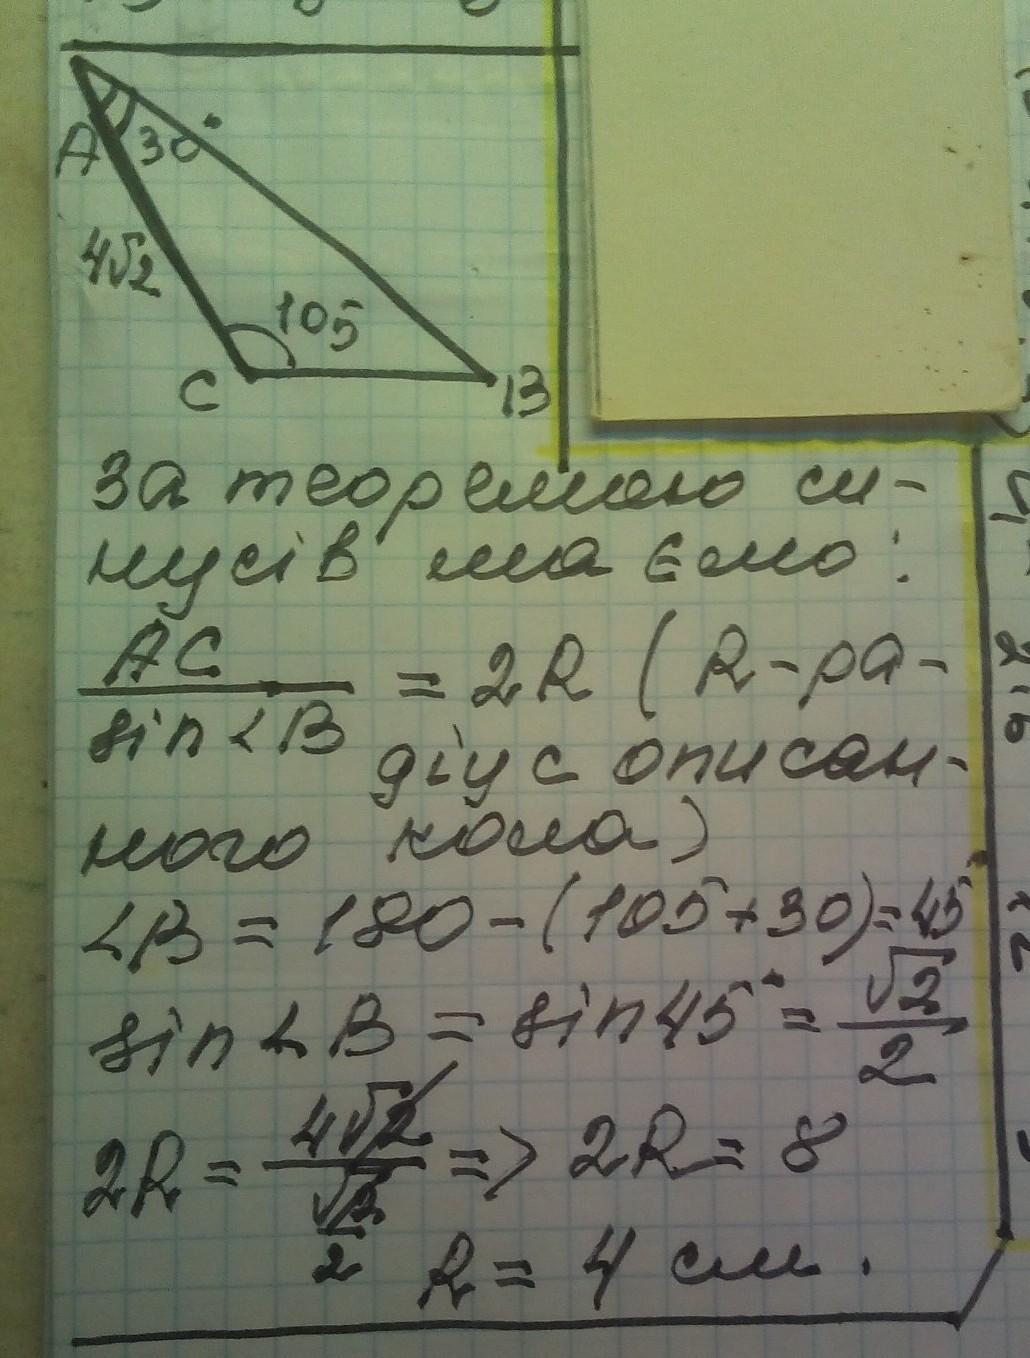 A 30°
4√2
105
C B
За теоремою си-
нусів маємо:
AC/sin∠B = 2R (R-ра-
діус описан-
ного кола)
∠B = 180-(105+30)=45°
sin∠B = sin45° = √2/2
2R = 4√2/(√2/2) => 2R = 8
R = 4 см.